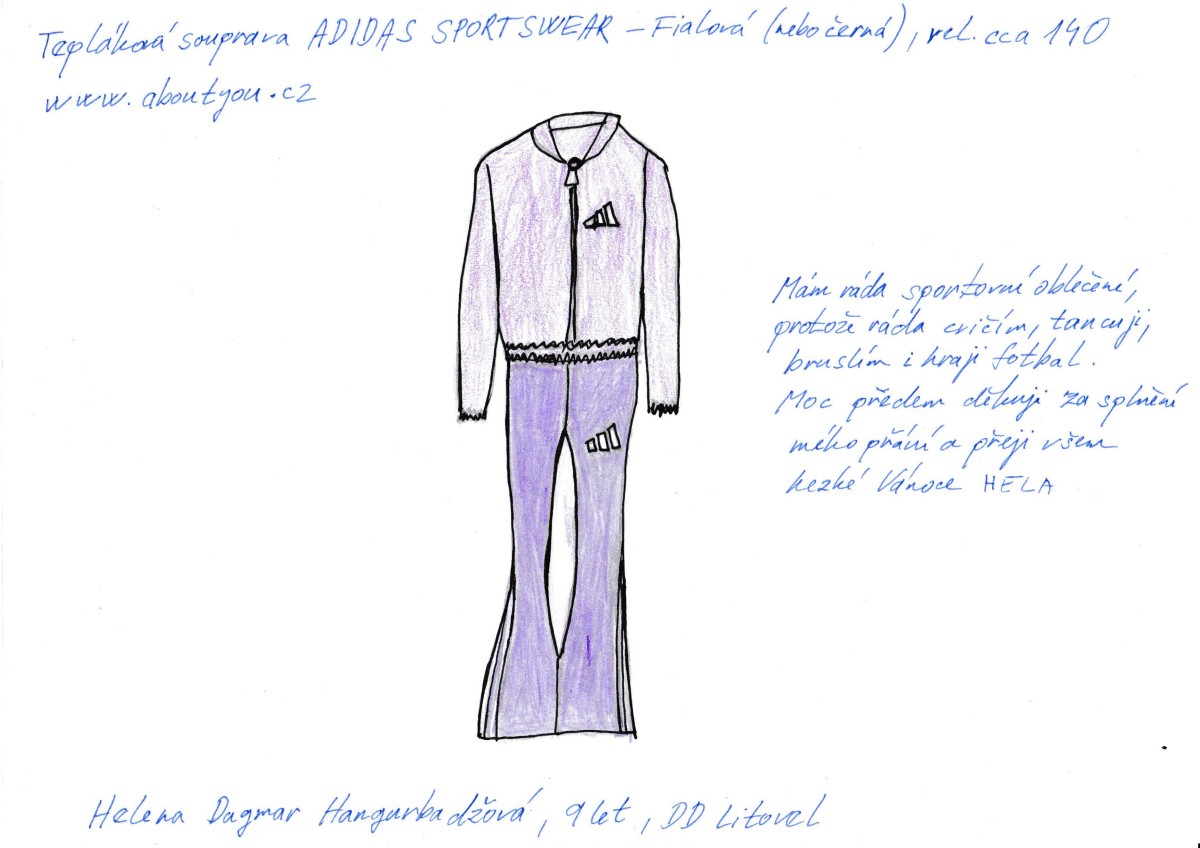 Tepláková souprava ADIDAS SPORTSWEAR – Fialová (nebo černá), vel. cca 140
www.aboutyou.cz
Mám ráda sportovní oblečení,
protože ráda cvičím, tancuji,
bruslím i hraji fotbal.
Moc předem děkuji za splnění
mého přání a přeji všem
hezké Vánoce HELA
Helena Dagmar Hangurbadžová, 9 let, DD Litovel